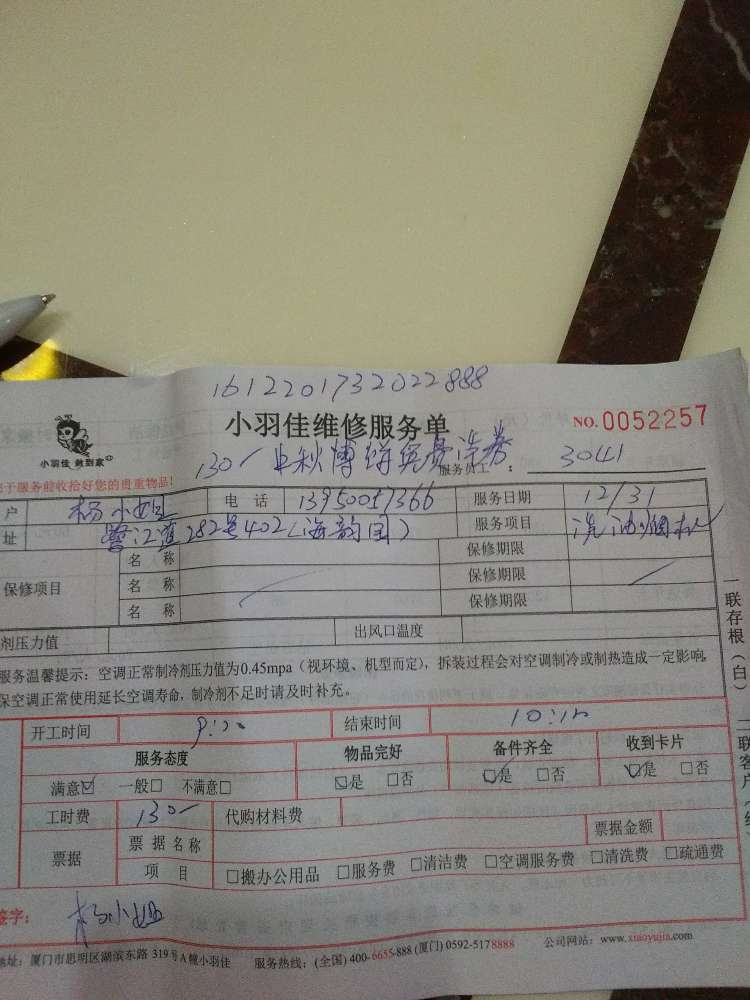 161220173202​2888
小羽佳维修服务单
NO.0052257
小羽佳 做到家
130一中秋博饼免费洗券
服务员工： 3041
于服务前收拾好您的贵重物品!
户 杨小姐 电 话 13950057366 服务日期 12/31
址 鹭江道282号402(海韵园) 服务项目 洗油烟机
保修项目 名 称 保修期限
名 称 保修期限
名 称 保修期限
剂压力值 出风口温度
服务温馨提示：空调正常制冷剂压力值为0.45mpa（视环境、机型而定），拆装过程会对空调制冷或制热造成一定影响，
保空调正常使用延长空调寿命，制冷剂不足时请及时补充。
开工时间 结束时间
服务态度 物品完好 备件齐全 收到卡片
满意☑ 一般□ 不满意□ ☑是 □否 ☑是 □否 ☑是 □否
工时费 130一 代购材料费
票据 票据名称 票据金额
项 目 □搬办公用品 □服务费 □清洁费 □空调服务费 □清洗费 □疏通费
签字： 杨小姐
地址：厦门市思明区湖滨东路 319号A幢小羽佳 服务热线：(全国) 400-6655-888 (厦门) 0592-5178888 公司网站：www.xiaoyujia.com
一联存根（白）
二联客户（